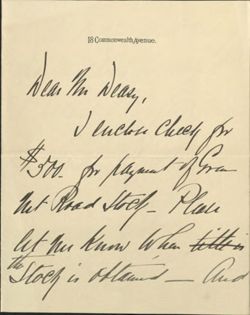 18 Commonwealth Avenue.
Dear Mr Deasy,
I enclose Check for
$500– for payment of
Road Stock – Please
let me know when
the Stock is obtained – And